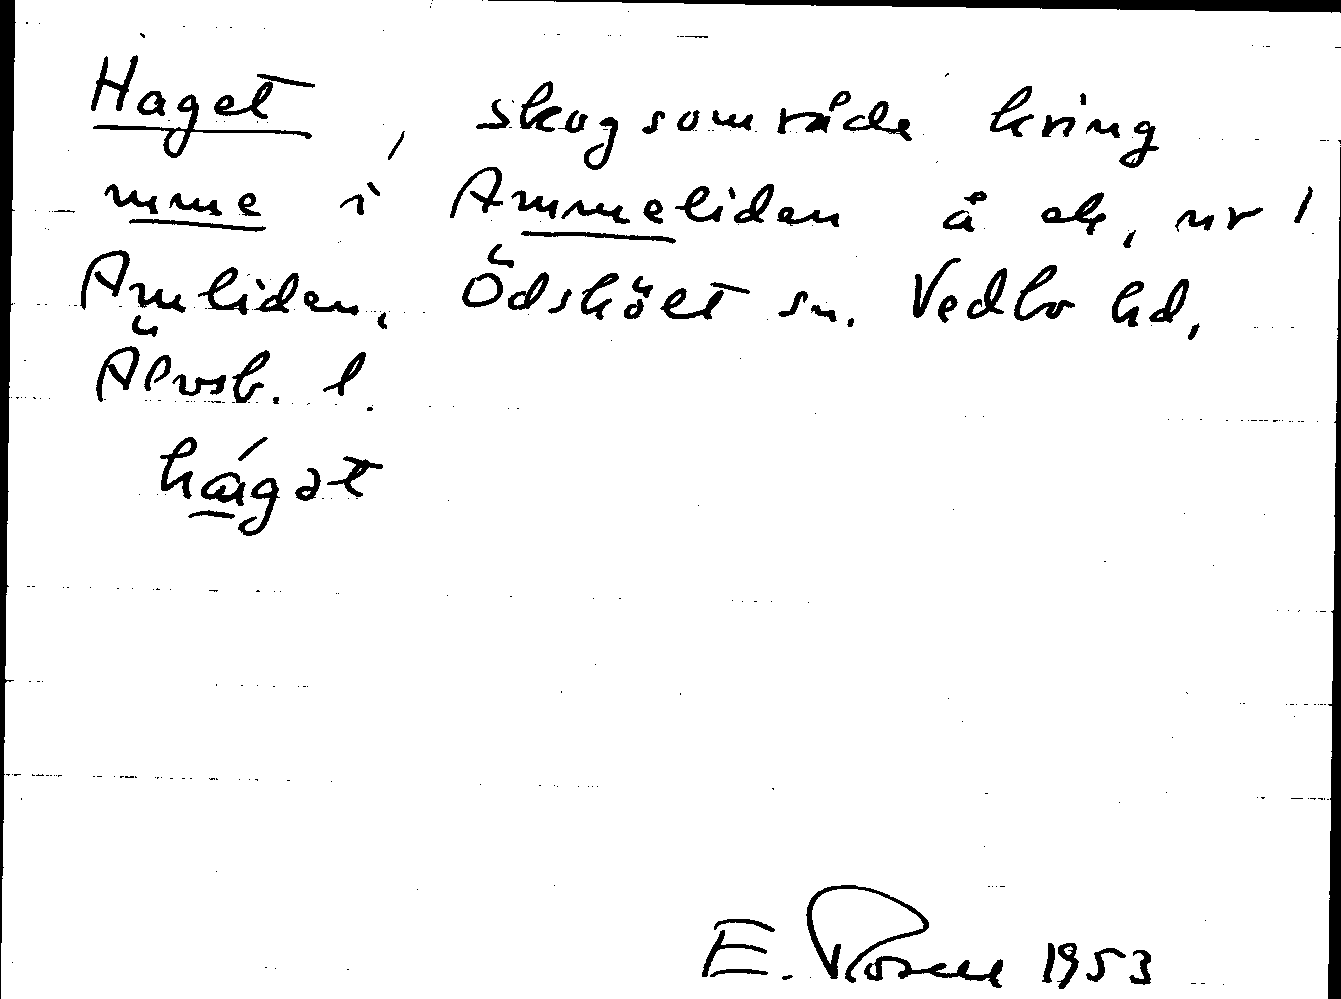 Haget, skogsområde kring
mme i Ammeliden å ek, nr 1
Amliden, Ödskölt sn. Vedbo hd,
Älvsb. l.
hágət
E. Rosell 1953